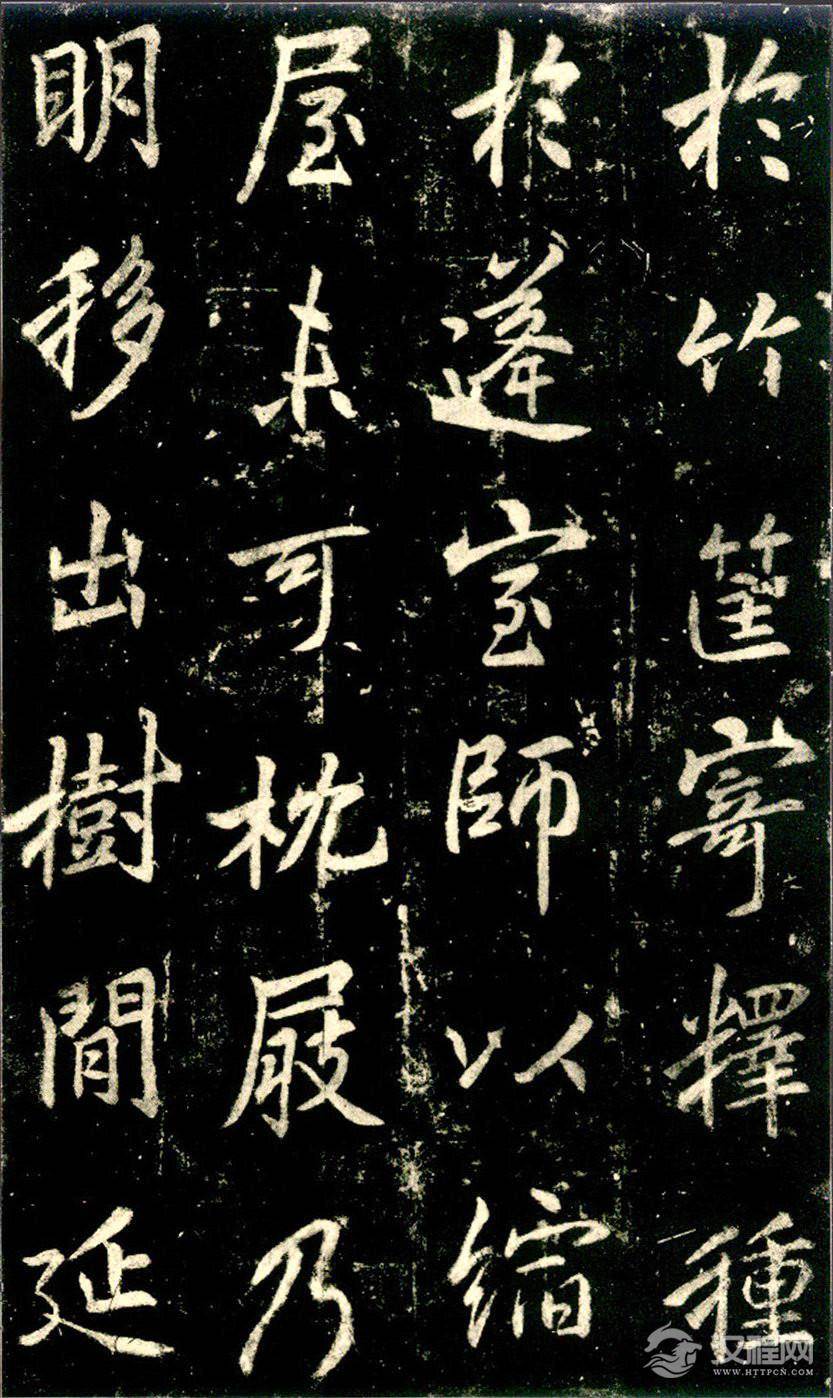 於竹筐寄釋種
於蓬室師以縮
屋未可枕屐乃
明移出樹間延
汉程网
WWW.HTTPCN.COM